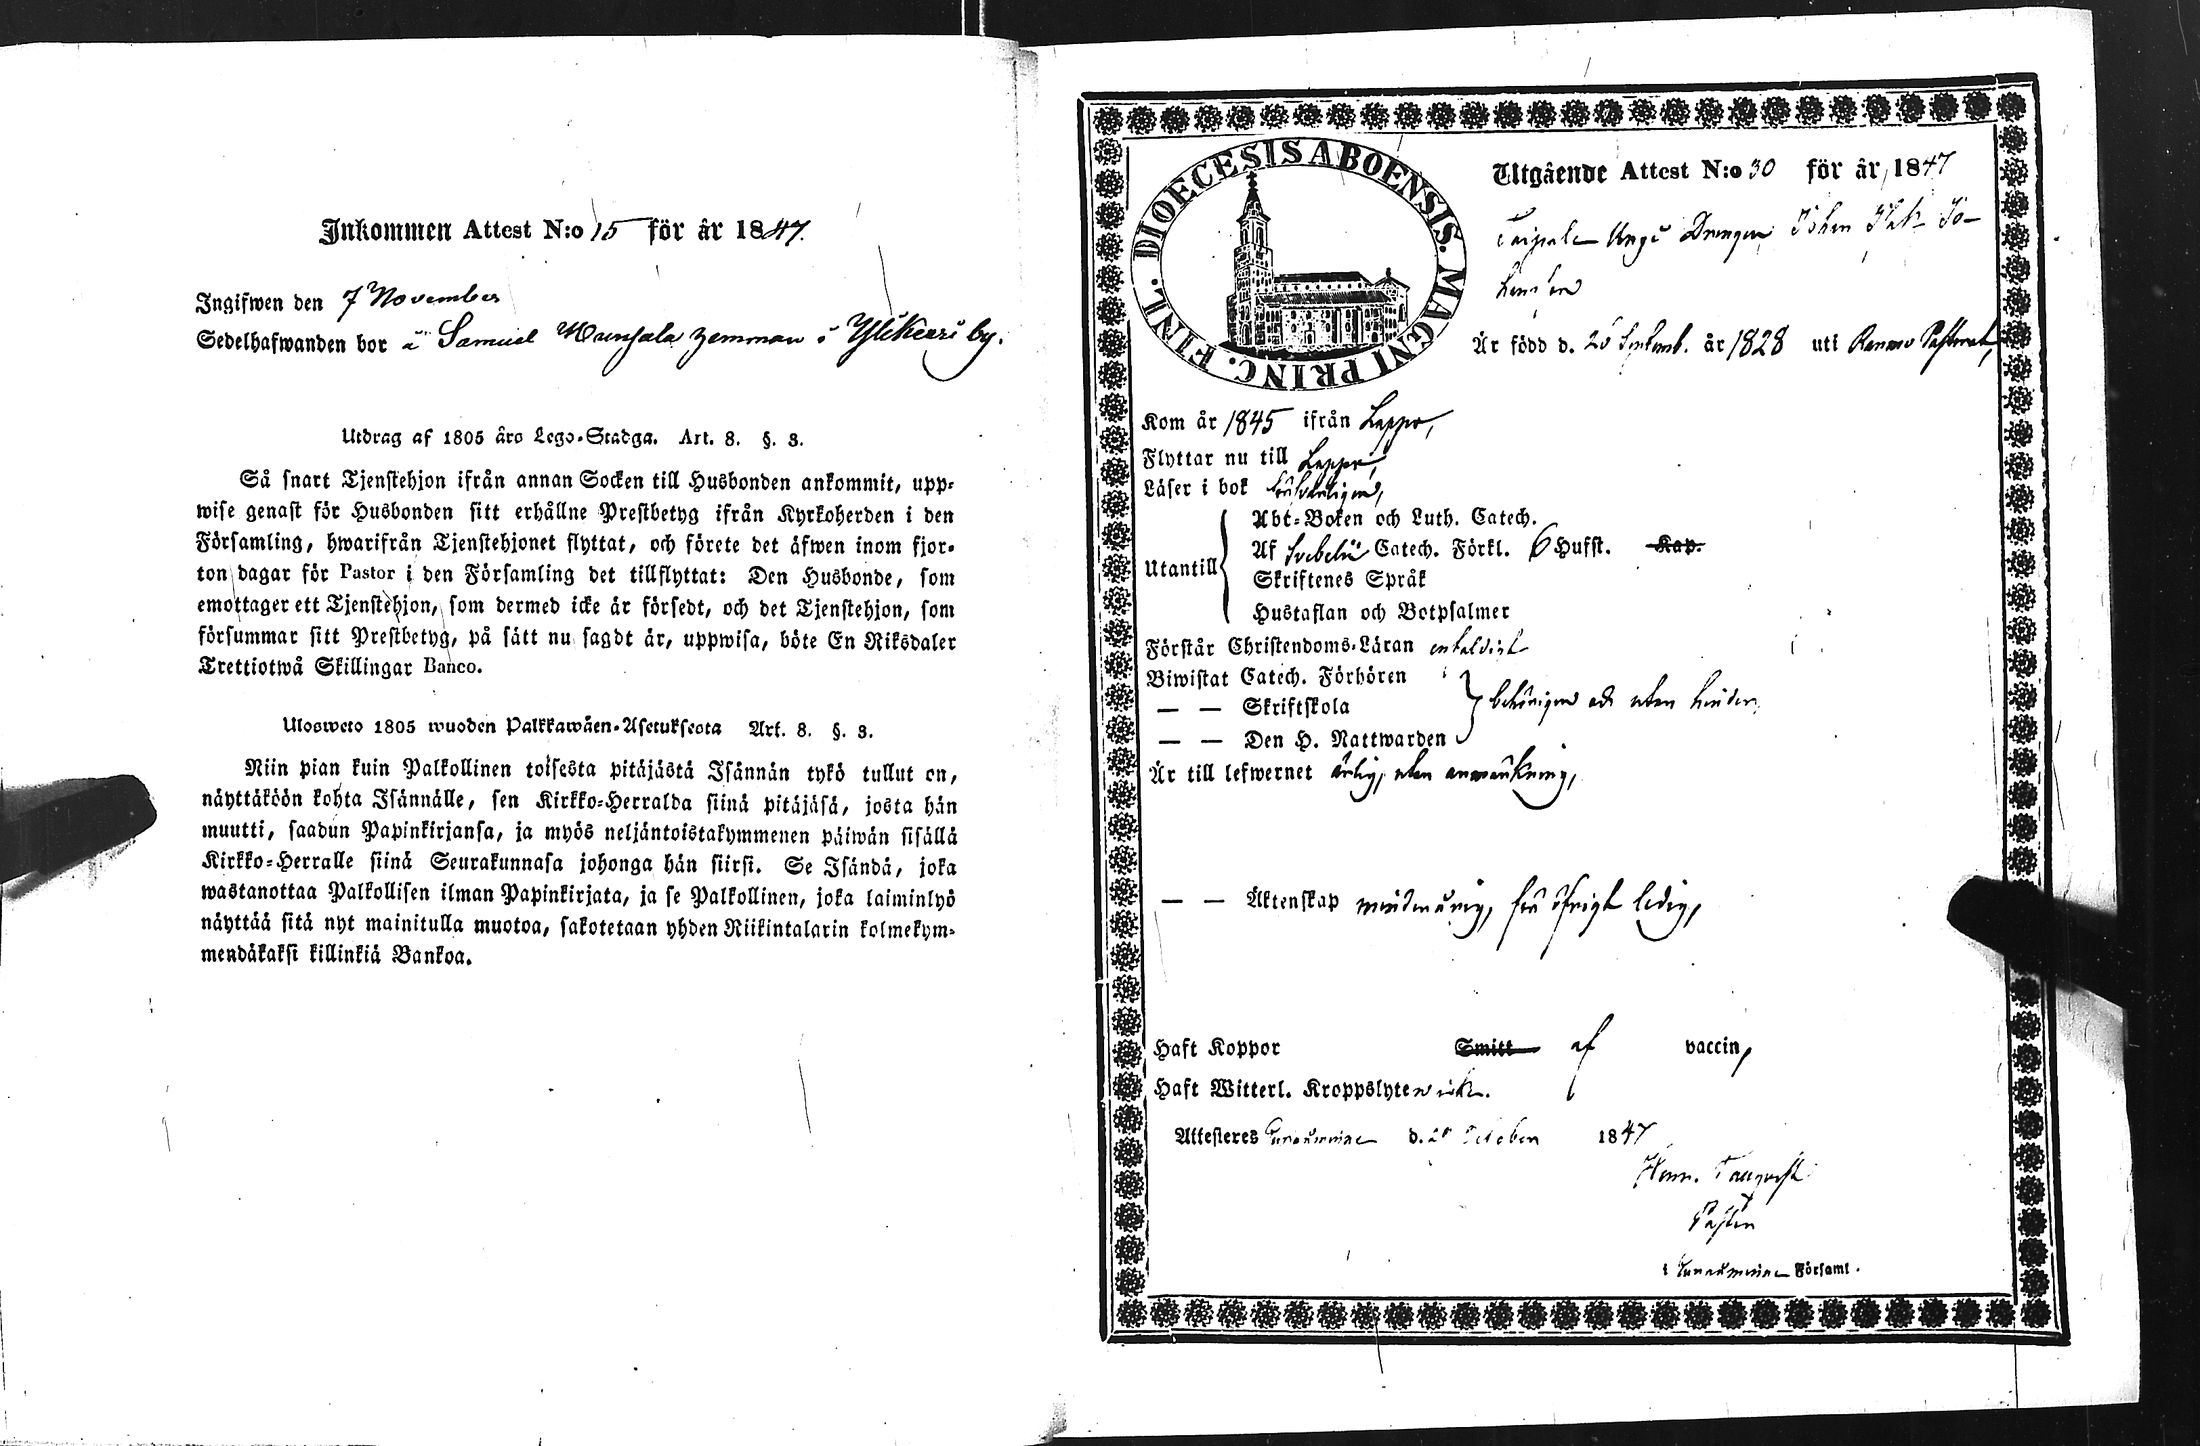 Inkommen Attest N:o 15 för år 1847.
Ingifwen den 7 November
Sedelhafwanden bor å Samuel Munsala hemman i Ylikerri by.
Utdrag af 1805 års Lego-Stadga. Art. 8. §. 3.
Så snart Tjenstehjon ifrån annan Socken till Husbonden ankommit, upp-
wise genast för Husbonden sitt erhållne Prestbetyg ifrån Kyrkoherden i den
Församling, hwarifrån Tjenstehjonet flyttat, och förete det äfwen inom fjor-
ton dagar för Pastor i den Församling det tillflyttat: Den Husbonde, som
emottager ett Tjenstehjon, som dermed icke är försedt, och det Tjenstehjon, som
försummar sitt Prestbetyg, på sätt nu sagdt är, uppwisa, böte En Riksdaler
Trettiotwå Skillingar Banco.
Ulosweto 1805 wuoden Palkkawäen-Asetuksesta Art. 8. §. 3.
Niin pian kuin Palkollinen toisesta pitäjästä Isännän tykö tullut on,
näyttäköön kohta Isännälle, sen Kirkko-Herralda siinä pitäjäsä, josta hän
muutti, saadun Papinkirjansa, ja myös neljäntoistakymmenen päiwän sisällä
Kirkko-Herralle siinä Seurakunnasa johonga hän siirsi. Se Isändä, joka
wastanottaa Palkollisen ilman Papinkirjata, ja se Palkollinen, joka laiminlyö
näyttää sitä nyt mainitulla muotoa, sakotetaan yhden Riikintalarin kolmekym-
mendäkaksi killinkiä Bankoa.
DIOECESIS ABOENSIS. MAGNI PRINC. FINL.
Utgående Attest N:o 30 för år 1847
Drengen Johan
Är född d. Septemb. år 1828 uti Pastorat,
Kom år 1845 ifrån Lappo,
Flyttar nu till Lappo,
Läser i bok försvarligen,
Utantill
Abt-Boken och Luth. Catech.
Af Svebelii Catech. Förkl. 6 Hufst. Kap.
Skriftenes Språk
Hustaflan och Botpsalmer
Förstår Christendoms-Läran enfaldigt
Biwistat Catech. Förhören
— — Skriftskola behörigen och utan hinder,
— — Den H. Nattwarden
Är till lefwernet ärlig, utan anmärkning,
— — Äktenskap minderårig, för öfrigt ledig,
Haft Koppor Smitt af vaccin,
Haft Witterl. Kroppslyten icke.
Attesteres d. October 1847
Henr.
Pastor
i Församl.